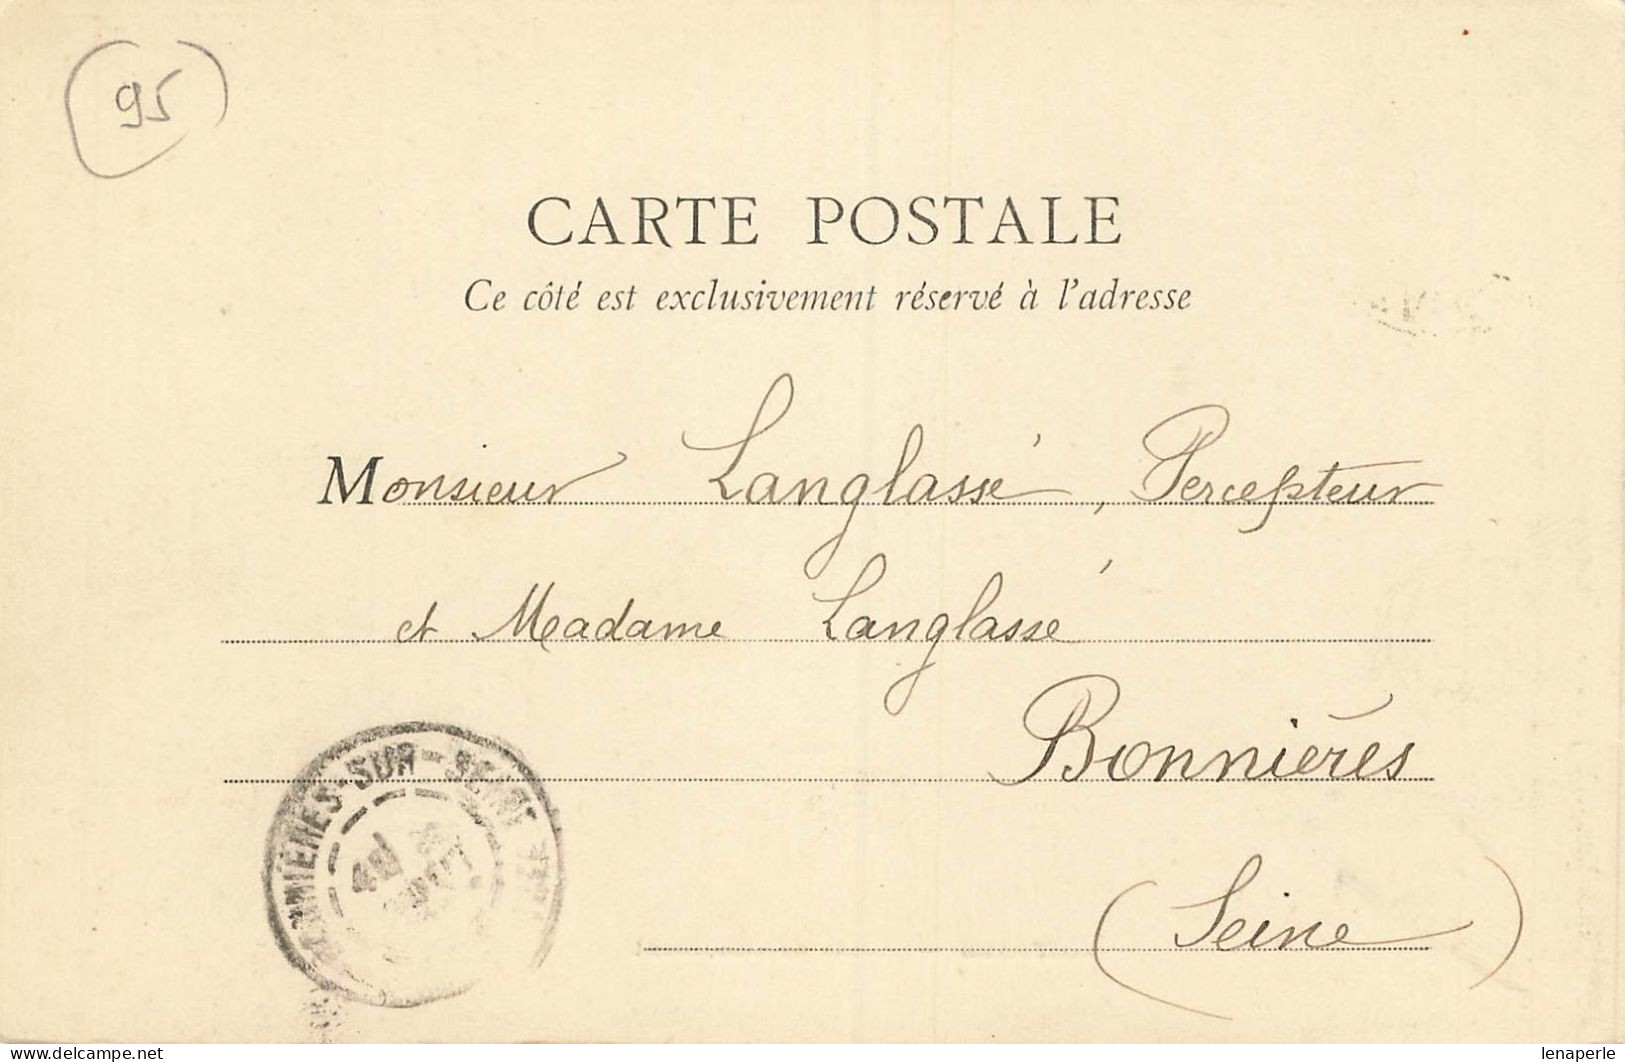 95
CARTE POSTALE
Ce côté est exclusivement réservé à l'adresse
Monsieur Langlassé, Percepteur
et Madame Langlassé
Bonnières
(Seine)
BONNIÈRES-SUR-SEINE
delcampe.net
lenaperle